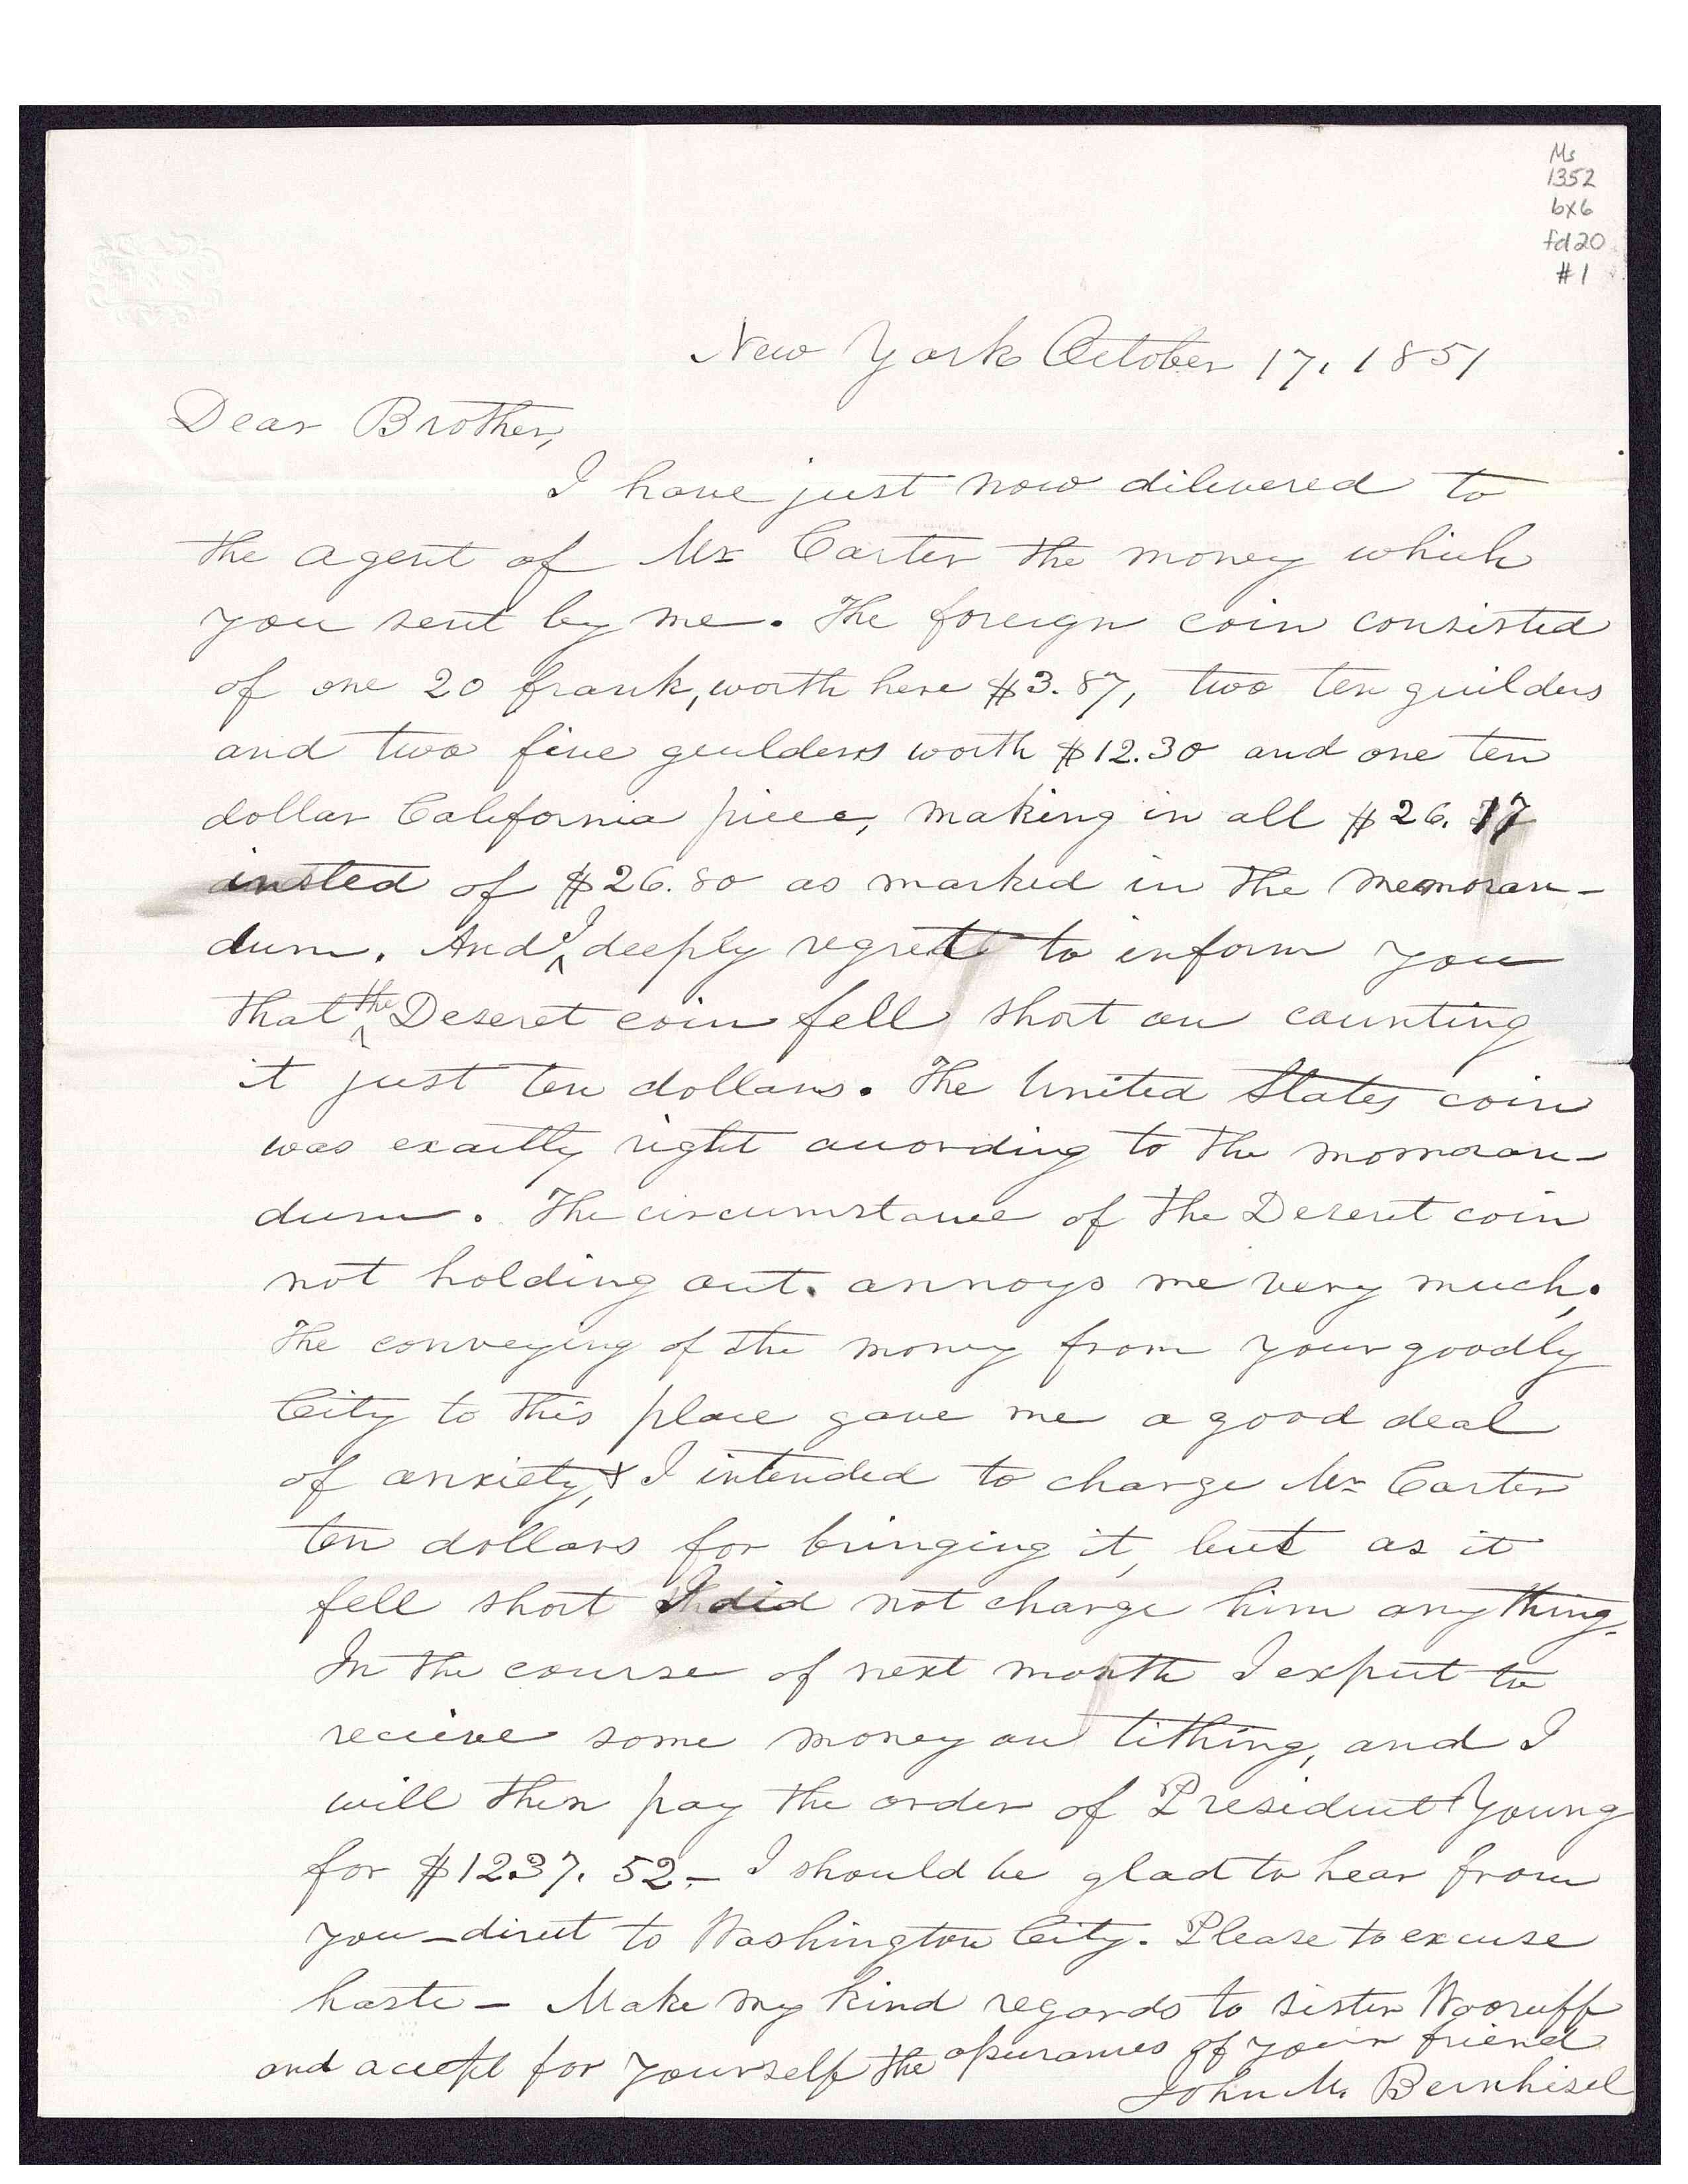 Ms
1352
bx6
fd20
#1
New York October 17, 1851
Dear Brother,
I have just now dilivered to
the agent of Mr Carter the money which
you sent by me. The foreign coin consisted
of one 20 frank, worth here $3.87, two ten guilders
and two five geulders worth $12.30 and one ten
dollar California piece, making in all $26.17
insted of $26.80 as marked in the memoran-
dum. And I deeply regret to inform you
that the Deseret coin fell short on counting
it just ten dollars. The United States coin
was exactly right according to the momoran-
dum. The circumstance of the Deseret coin
not holding out. annoys me very much.
The conveying of the money from your goodly
City to this place gave me a good deal
of anxiety, & I intended to charge Mr Carter
ten dollars for bringing it, but as it
fell short I did not charge him any thing.
In the course of next month I expect to
recieve some money on tithing, and I
will then pay the order of President Young
for $1237.52_ I should be glad to hear from
you_direct to Washington City. Please to excuse
haste_ Make my kind regards to sister Wooruff
and accept for yourself the assurances of your friend
John M. Bernhisel